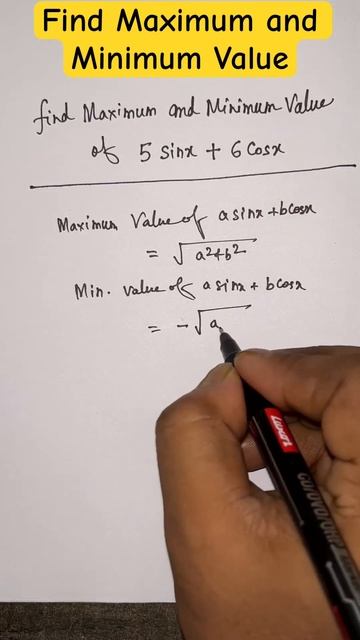 Find Maximum and
Minimum Value
find Maximum and Minimum Value
of 5 sinx + 6 Cosx
Maximum Value of a sinx + b cosx
= √a²+b²
Min. value of a sinx + b cosx
= -√a